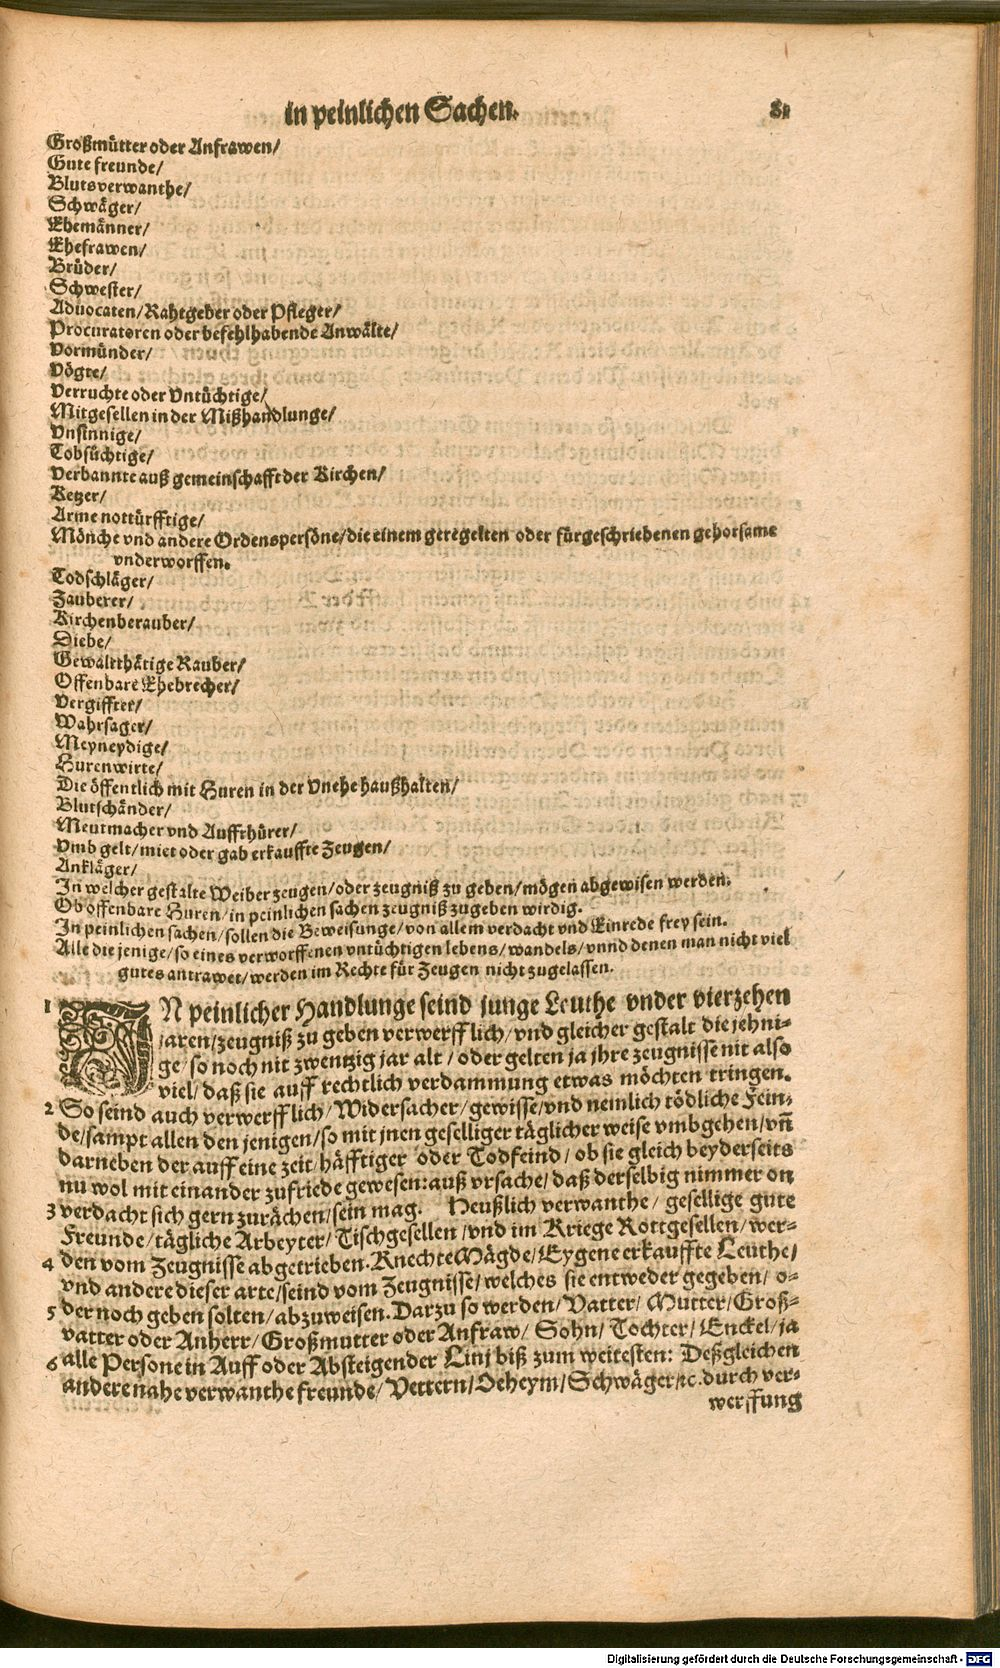 in peinlichen Sachen. 81
Großmütter oder Anfrawen/
Gute freunde/
Blutsverwanthe/
Schwäger/
Ehemänner/
Ehefrawen/
Brüder/
Schwester/
Advocaten/Rahtgeber oder Pfleger/
Procuratoren oder befehlhabende Anwälte/
Vormünder/
Vögte/
Verruchte oder Vntüchtige/
Mitgesellen in der Mißhandlunge/
Vnsinnige/
Tobsüchtige/
Verbannte auß gemeinschafft der Kirchen/
Ketzer/
Arme nottürfftige/
Mönche vnd andere Ordenspersöne/die einem geregelten oder fürgeschriebenen gehorsame
vnderworffen.
Todschläger/
Zauberer/
Kirchenberauber/
Diebe/
Gewaltthätige Rauber/
Offenbare Ehebrecher/
Vergiffter/
Wahrsager/
Meyneydige/
Hurenwirte/
Die öffentlich mit Huren in der Vnehe haußhalten/
Blutschänder/
Meutmacher vnd Auffrhürer/
Vmb gelt/miet oder gab erkauffte Zeugen/
Ankläger/
In welcher gestalte Weiber zeugen/oder zeugniß zu geben/mögen abgewisen werden.
Ob offenbare Huren/in peinlichen sachen zeugniß zugeben wirdig.
In peinlichen sachen/sollen die Beweisunge/von allem verdacht vnd Einrede frey sein.
Alle die jenige/so eines verworffenen vntüchtigen lebens/wandels/vnnd denen man nicht viel
gutes antrawet/werden im Rechte für Zeugen nicht zugelassen.
1 IN peinlicher Handlunge seind junge Leuthe vnder vierzehen
jaren/zeugniß zu geben verwerfflich/vnd gleicher gestalt die jehni-
ge/so noch nit zwentzig jar alt/oder gelten ja jhre zeugnisse nit also
viel/daß sie auff rechtlich verdammung etwas möchten tringen.
2 So seind auch verwerfflich/Widersacher/gewisse/vnd nemlich tödliche Fein-
de/sampt allen den jenigen/so mit jnen geselliger täglicher weise vmbgehen/vñ
darneben der auff eine zeit häfftiger oder Todfeind/ob sie gleich beyderseits
nu wol mit einander zufriede gewesen:auß vrsache/daß derselbig nimmer on
3 verdacht sich gern zurächen/sein mag. Heußlich verwanthe/gesellige gute
Freunde/tägliche Arbeyter/Tischgesellen/vnd im Kriege Rottgesellen/wer-
4 den vom Zeugnisse abgetrieben. Knechte Mägde/Eygene erkauffte Leuthe/
vnd andere dieser arte/seind vom Zeugnisse/welches sie entweder gegeben/o-
5 der noch geben solten/abzuweisen. Darzu so werden/Vatter/Mutter/Groß-
vatter oder Anherr/Großmutter oder Anfraw/Sohn/Tochter/Enckel/ja
6 alle Persone in Auff oder Absteigender Linj biß zum weitesten: Deßgleichen
andere nahe verwanthe freunde/Vettern/Oeheym/Schwäger/ꝛc. durch ver-
werffung
Digitalisierung gefördert durch die Deutsche Forschungsgemeinschaft - DFG